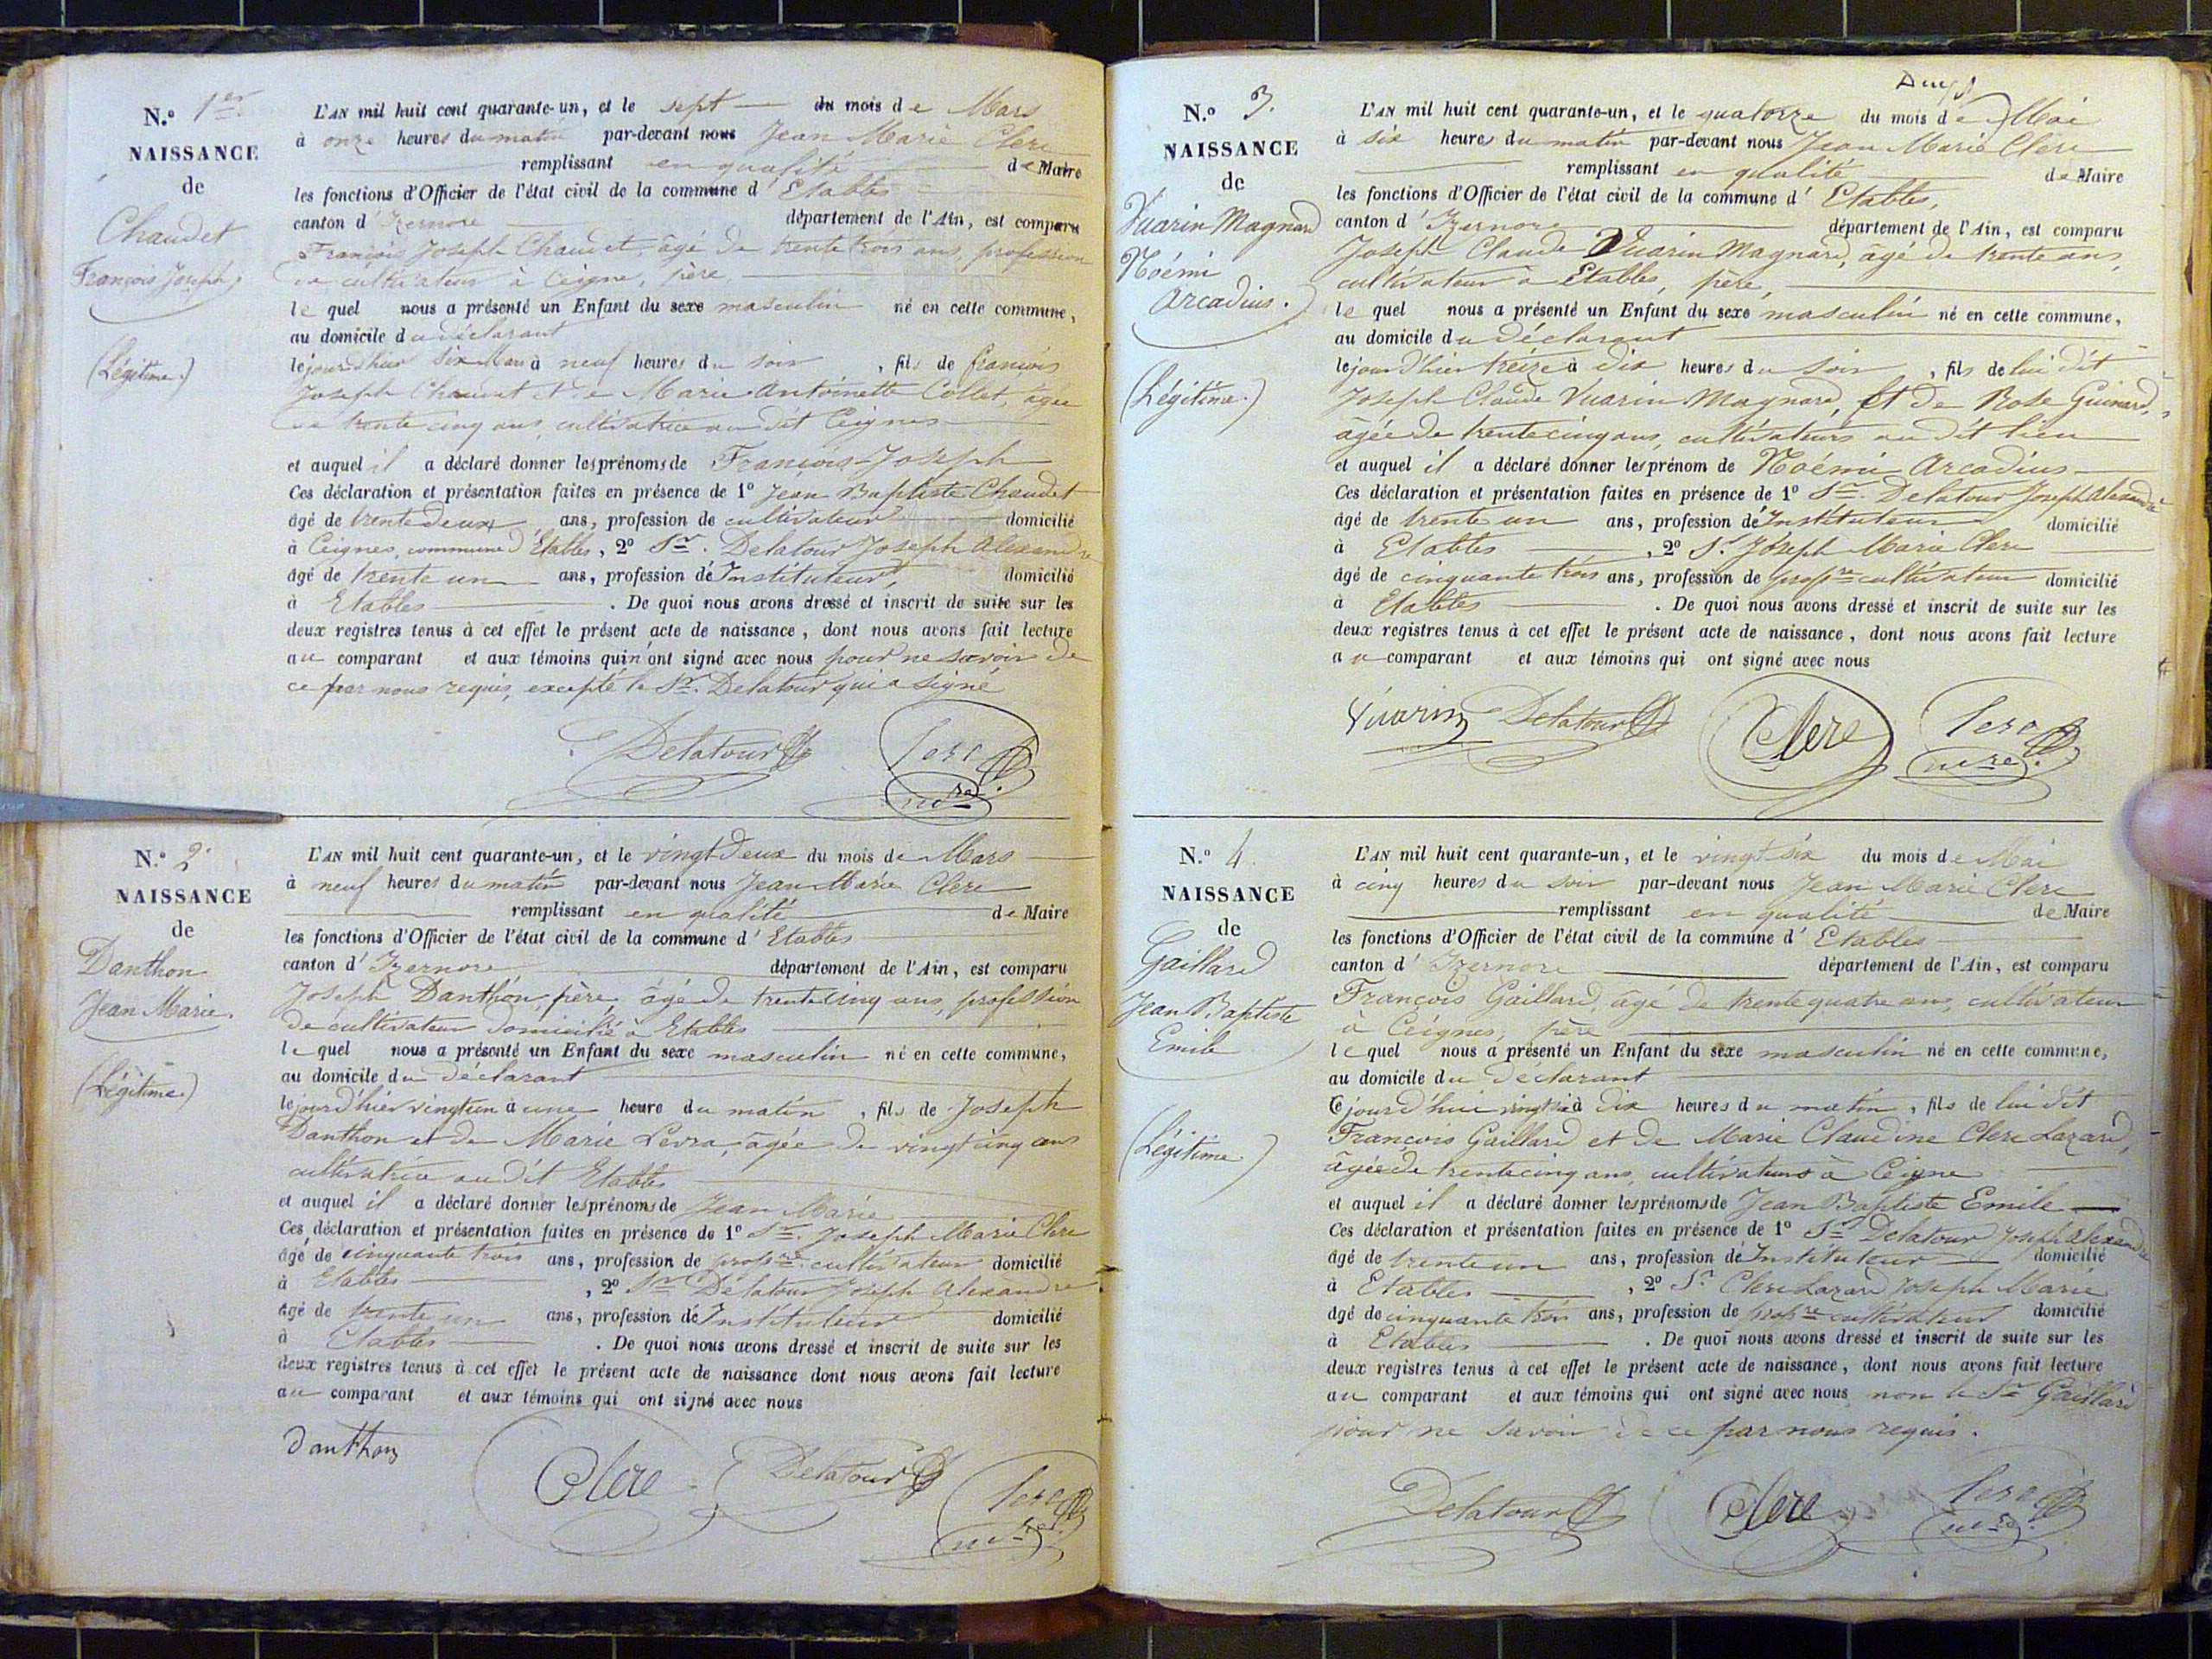 N.° 1er
NAISSANCE
de
Chaudet
François Joseph.
(Légitime.)
L'AN mil huit cent quarante-un, et le sept du mois de Mars
à onze heures du matin par-devant nous Jean Marie Clerc
remplissant en qualité de Maire
les fonctions d'Officier de l'état civil de la commune d'Etables
canton d'Izernore département de l'Ain, est comparu
François Joseph Chaudet, âgé de trente trois ans, profession
de cultivateur à Ceigne, père
le quel nous a présenté un Enfant du sexe masculin né en cette commune,
au domicile du déclarant
le jour d'hier six Mars à neuf heures du soir, fils de françois
Joseph Chaudet et de Marie Antoinette Collet, âgée
de trente cinq ans, cultivatrice au dit Ceignes
et auquel il a déclaré donner les prénoms de François-Joseph
Ces déclaration et présentation faites en présence de 1° Jean Baptiste Chaudet
âgé de trente deux ans, profession de cultivateur domicilié
à Ceignes, commune d'Etables, 2° Sr. Delatour Joseph Alexandre
âgé de trente un ans, profession d'Instituteur, domicilié
à Etables. De quoi nous avons dressé et inscrit de suite sur les
deux registres tenus à cet effet le présent acte de naissance, dont nous avons fait lecture
au comparant et aux témoins qui n'ont signé avec nous pour ne savoir de
ce par nous requis, excepté le Sr. Delatour qui a signé
Delatour Clerc
mre.
N.° 2
NAISSANCE
de
Danthon
Jean Marie.
(Légitime.)
L'AN mil huit cent quarante-un, et le vingt deux du mois de Mars
à neuf heures du matin par-devant nous Jean Marie Clerc
remplissant en qualité de Maire
les fonctions d'Officier de l'état civil de la commune d'Etables
canton d'Izernore département de l'Ain, est comparu
Joseph Danthon, père, âgé de trente cinq ans, profession
de cultivateur domicilié à Etables
le quel nous a présenté un Enfant du sexe masculin né en cette commune,
au domicile du déclarant
le jour d'hier vingt un à une heure du matin, fils de Joseph
Danthon et de Marie Levra, âgée de vingt cinq ans
cultivatrice au dit Etables
et auquel il a déclaré donner les prénoms de Jean Marie
Ces déclaration et présentation faites en présence de 1° Sr. Joseph Marie Clerc
âgé de cinquante trois ans, profession de propre cultivateur domicilié
à Etables, 2° Sr Delatour Joseph Alexandre
âgé de trente un ans, profession d'Instituteur domicilié
à Etables. De quoi nous avons dressé et inscrit de suite sur les
deux registres tenus à cet effet le présent acte de naissance dont nous avons fait lecture
au comparant et aux témoins qui ont signé avec nous
Danthon Clerc Delatour Clerc
mre.
N.° 3.
NAISSANCE
de
Vuarin Magnard
Noémi
Arcadius.
(Légitime.)
L'AN mil huit cent quarante-un, et le quatorze du mois de Mai
à six heures du matin par-devant nous Jean Marie Clerc
remplissant en qualité de Maire
les fonctions d'Officier de l'état civil de la commune d'Etables,
canton d'Izernore département de l'Ain, est comparu
Joseph Claude Vuarin Magnard, âgé de trente ans,
cultivateur à Etables, père,
le quel nous a présenté un Enfant du sexe masculin né en cette commune,
au domicile du déclarant
le jour d'hier treize à dix heures du soir, fils de lui dit
Joseph Claude Vuarin Magnard, Et de Rose Guinard,
âgée de trente cinq ans, cultivateurs au dit lieu
et auquel il a déclaré donner les prénom de Noémi Arcadius
Ces déclaration et présentation faites en présence de 1° Sr. Delatour Joseph Alexandre
âgé de trente un ans, profession d'Instituteur domicilié
à Etables, 2° Sr. Joseph Marie Clerc
âgé de cinquante trois ans, profession de propre cultivateur domicilié
à Etables. De quoi nous avons dressé et inscrit de suite sur les
deux registres tenus à cet effet le présent acte de naissance, dont nous avons fait lecture
au comparant et aux témoins qui ont signé avec nous
Vuarin Delatour Clerc Clerc
mre.
N.° 4.
NAISSANCE
de
Gaillard
Jean Baptiste
Emile
(Légitime)
L'AN mil huit cent quarante-un, et le vingt six du mois de Mai
à cinq heures du soir par-devant nous Jean Marie Clerc
remplissant en qualité de Maire
les fonctions d'Officier de l'état civil de la commune d'Etables
canton d'Izernore département de l'Ain, est comparu
François Gaillard, âgé de trente quatre ans, cultivateur
à Ceignes, père
le quel nous a présenté un Enfant du sexe masculin né en cette commune,
au domicile du déclarant
Ce jour d'hui vingt six à dix heures du matin, fils de lui dit
François Gaillard et de Marie Claudine Clerc Lazard,
âgée de trente cinq ans, cultivateurs à Ceigne
et auquel il a déclaré donner les prénoms de Jean Baptiste Emile
Ces déclaration et présentation faites en présence de 1° Sr Delatour Joseph Alexandre
âgé de trente un ans, profession d'Instituteur domicilié
à Etables, 2° Sr. Clerc Lazard Joseph Marie
âgé de cinquante trois ans, profession de propre cultivateur domicilié
à Etables. De quoi nous avons dressé et inscrit de suite sur les
deux registres tenus à cet effet le présent acte de naissance, dont nous avons fait lecture
au comparant et aux témoins qui ont signé avec nous non le Sr Gaillard
pour ne savoir de ce par nous requis.
Delatour Clerc Clerc
mre.